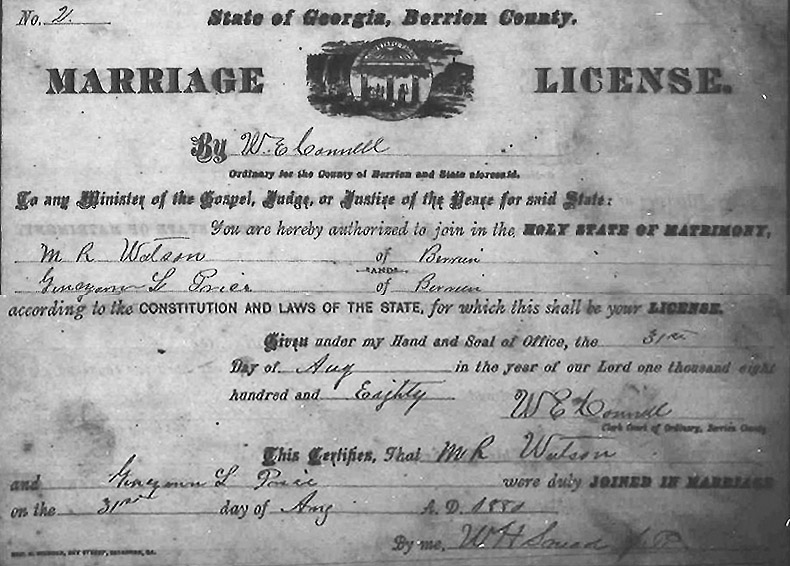 No. 2.
State of Georgia, Berrien County.
MARRIAGE LICENSE.
By W. E. Connell
Ordinary for the County of Berrien and State aforesaid.
To any Minister of the Gospel, Judge, or Justice of the Peace for said State:
You are hereby authorized to join in the HOLY STATE OF MATRIMONY,
M R Watson of Berrien
AND
L Price of Berrien
according to the CONSTITUTION AND LAWS OF THE STATE, for which this shall be your LICENSE.
Given under my Hand and Seal of Office, the 31st
Day of Aug in the year of our Lord one thousand eight
hundred and Eighty
W E Connell
Clerk Court of Ordinary, Berrien County
This Certifies, That M R Watson
and L Price were duly JOINED IN MARRIAGE
on the 31st day of Aug A. D. 1880
By me, W H J P